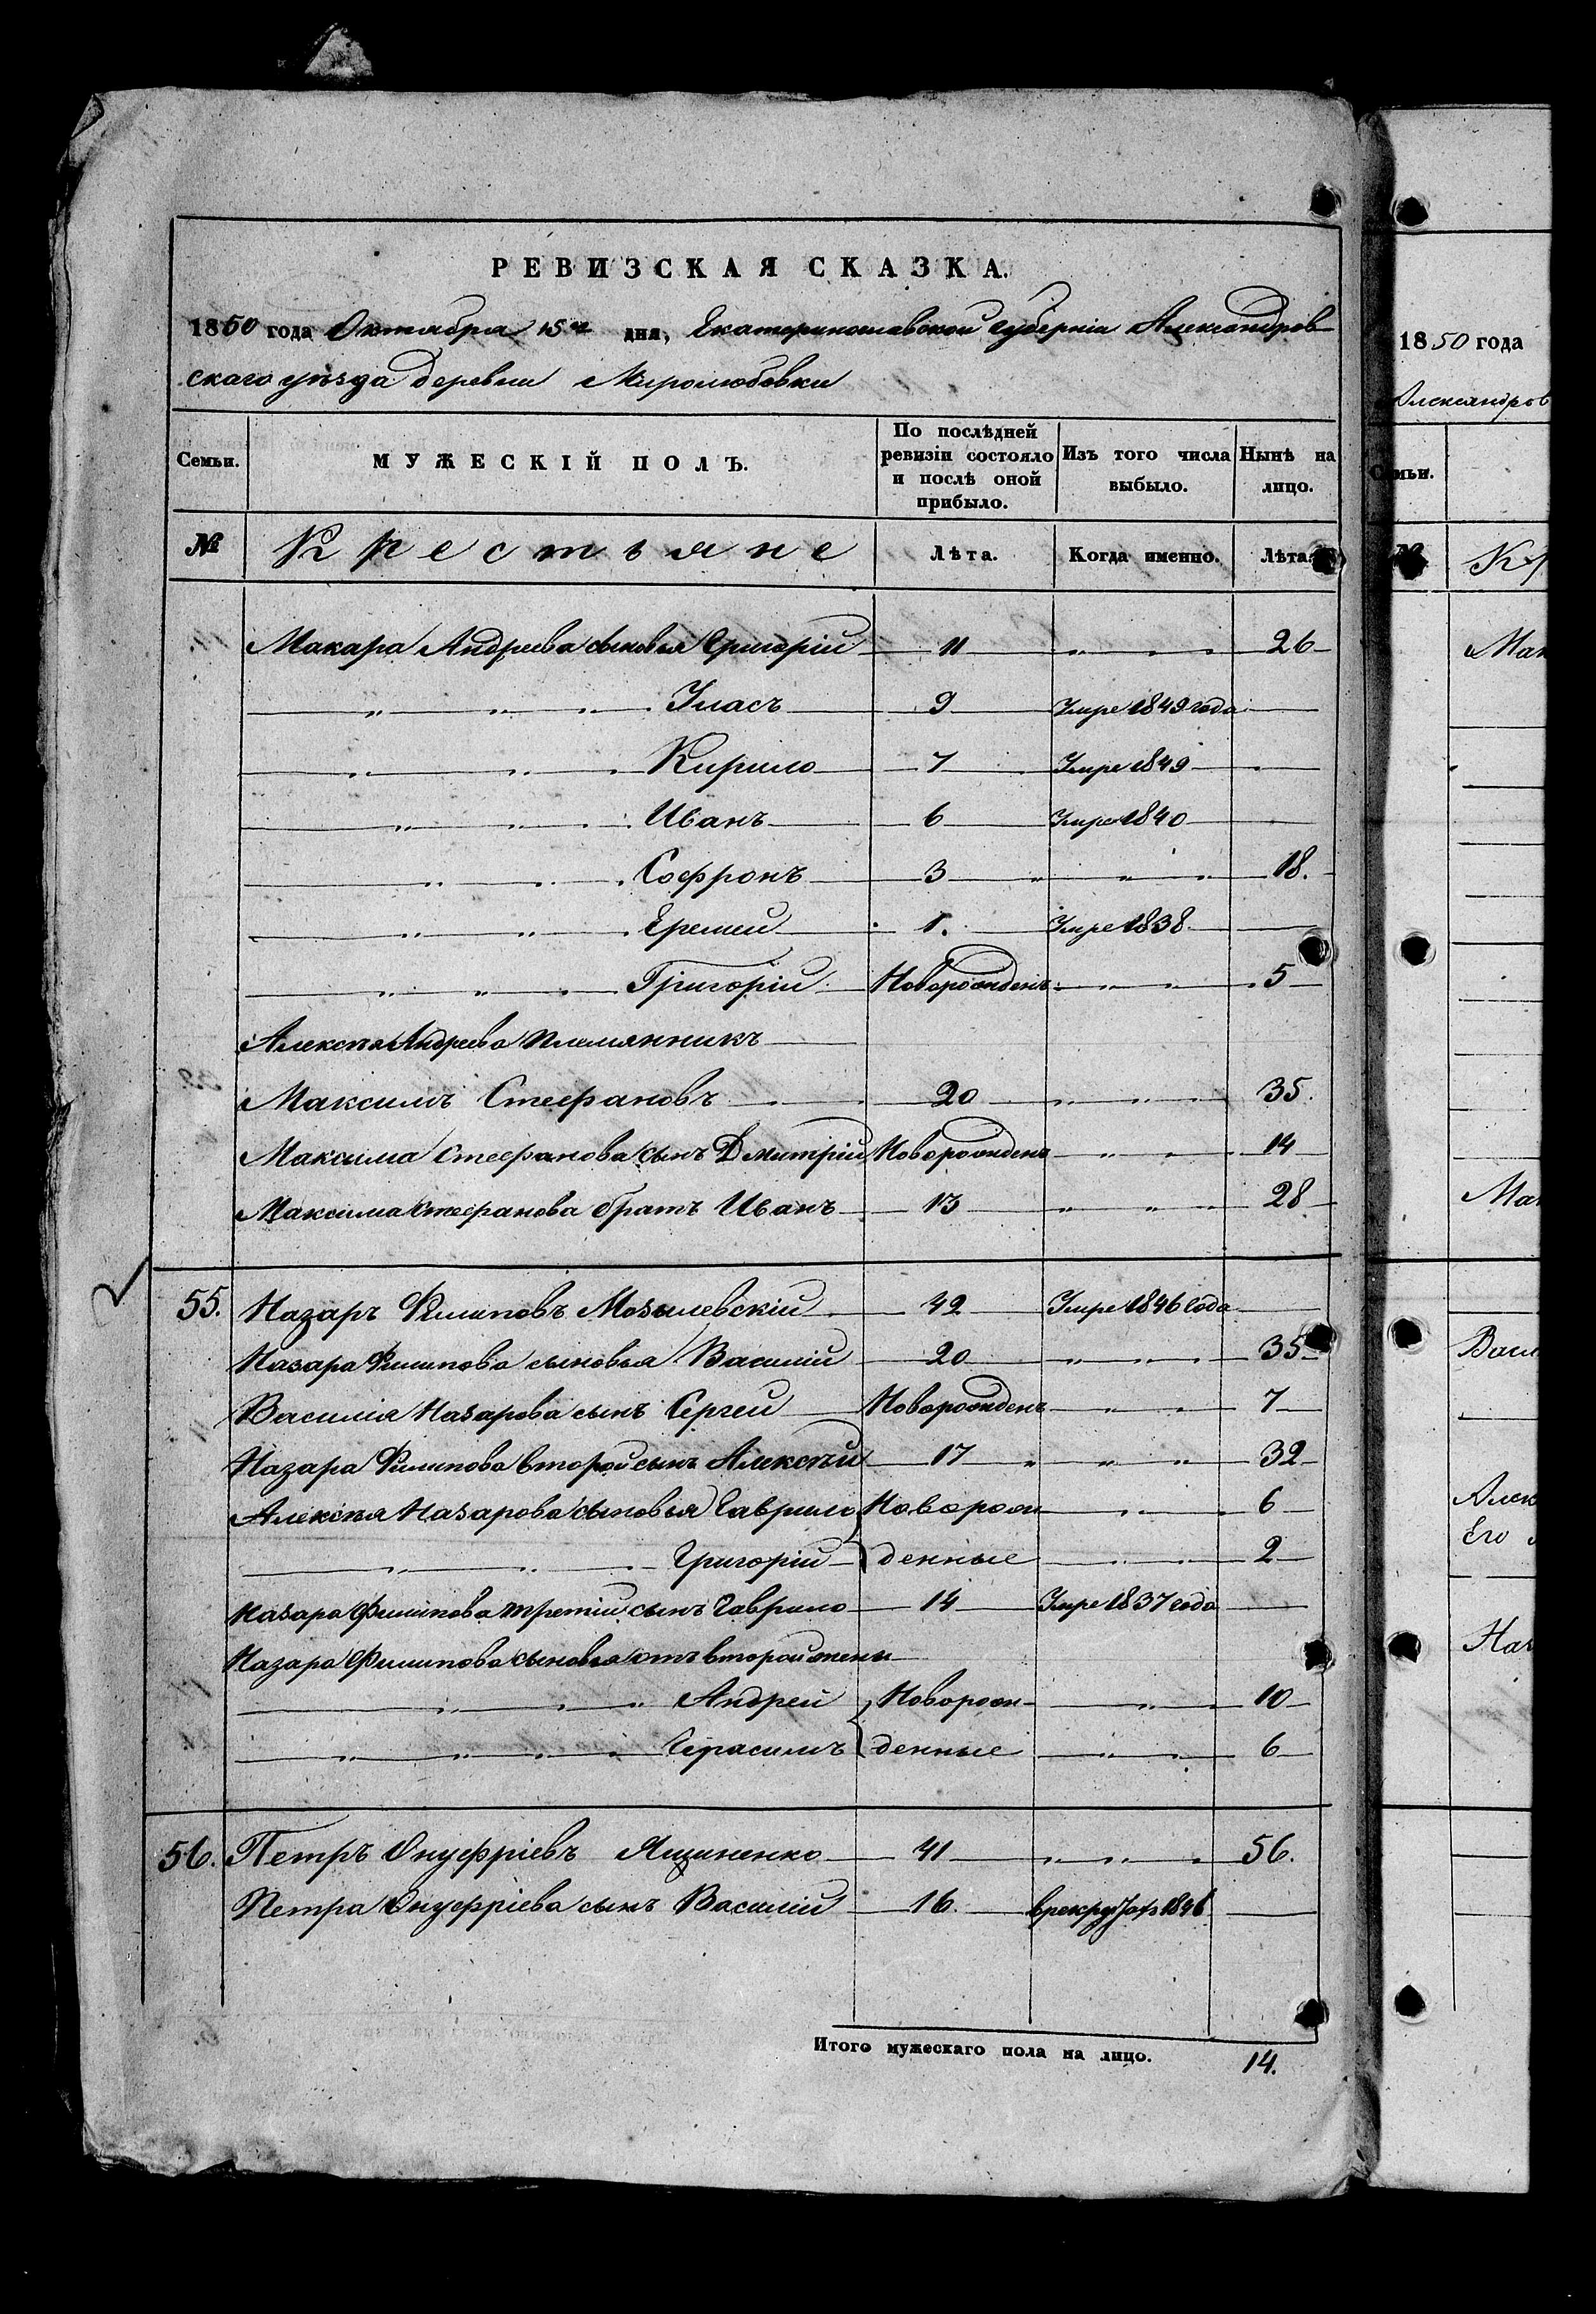 РЕВИЗСКАЯ СКАЗКА.
1850 года Октября 15го дня, Екатеринославской губерніи Александров-
скаго уѣзда деревни Миролюбовки
Семьи. МУЖЕСКІЙ ПОЛЪ. По послѣдней ревизіи состояло и послѣ оной прибыло. Изъ того числа выбыло. Нынѣ на лицо.
№ Крестьяне Лѣта. Когда именно. Лѣта.
Макара Андреева сыновья Григорій 11 " " 26
" " " Уласъ 9 Умре 1849 года
" " " Кирило 7 Умре 1849
" " " Иванъ 6 Умре 1840
" " " Софронъ 3 " " " 18.
" " Еремей 1. Умре 1838
" " " Григорій Новорожденъ " " 5
Алексѣя Андреева племянникъ
Максимъ Стефановъ 20 " " " 35.
Максима Стефанова сынъ Дмитрій Новорожденъ " " 14
Максима Стефанова братъ Иванъ 13 " " " 28
55. Назаръ Филиповъ Могылевскій 42 Умре 1846 года
Назара Филипова сыновья Василій 20 " " 35
Василія Назарова сынъ Сергей Новорожденъ " " 7
Назара Филипова второй сынъ Алексѣй 17 " " " 32
Алексѣя Назарова сыновья Гаврило Новорож " " 6
" " " Григорій денные " " 2
Назара Филипова третій сынъ Гаврило 14 Умре 1837 года
Назара Филипова сыновья отъ второй жены
" " " Андрей Новорож- " " 10
" " " " Герасимъ денные " " 6
56. Петръ Онуфріевъ Ященко 41 " " " 56.
Петра Онуфріева сынъ Василій 16. 1846
Итого мужескаго пола на лицо. 14.
1850 года
Александров